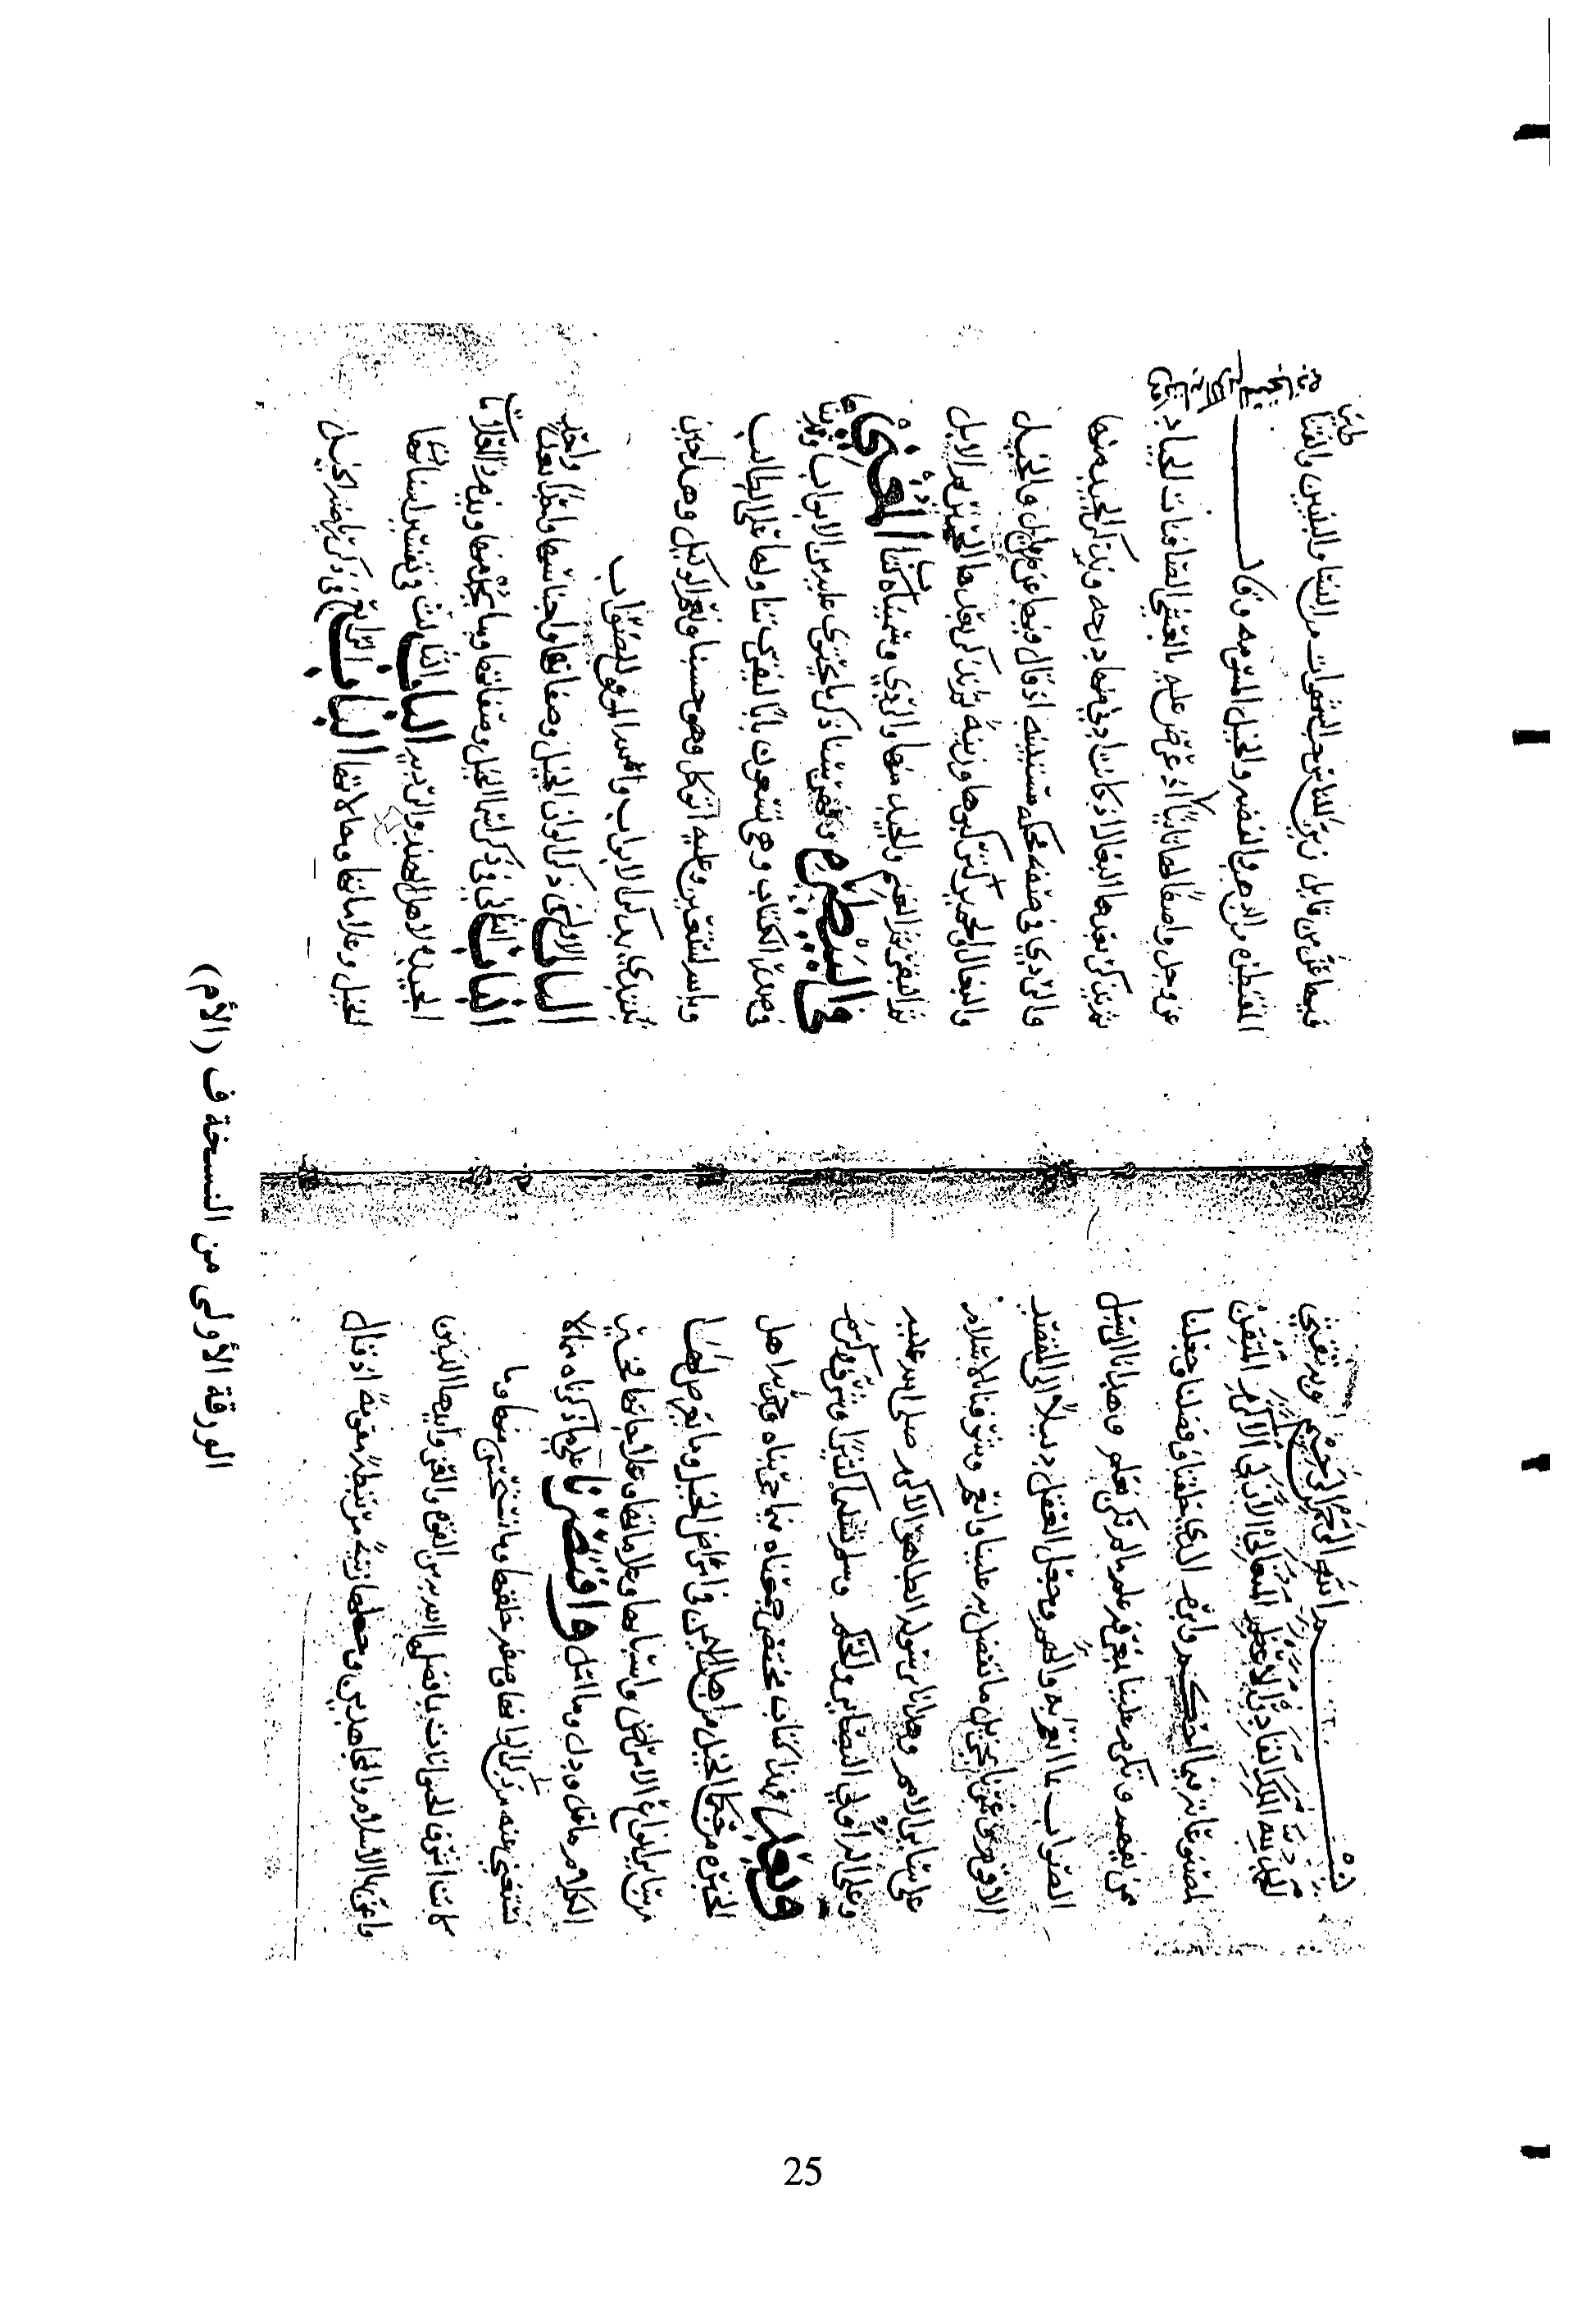 بسم الله الرحمن الرحيم وبه ثقتي
الحمد لله الملك القادر الاعظم المتعالي الازلي الاكرم المتقن
لمصنوعاته بما احكم وابرم الذي خلقنا وفضلنا وجعلنا
ممن يعبد وتكرم علينا بمعرفة علم ما لم نكن نعلم وهدانا الى سبل
الصواب بما انعم به والهم وجعل العقل دليلا الى المقصد
الاقوم حتى عرفنا بجزيل ما تفضل به علينا وانعم وشرفنا بالاسلام
على ساير الامم وهدانا برسوله الطاهر الاكرم صلى الله عليه
وعلى اله اولي البصاير والحكم وسلم تسليما كثيرا وشرف وكرم
وبعد فهذا كتاب مختصر جمعناه مما جربناه وجربه اهل
الخبره من حكما الخيل من اهل اليمن في امراض الخيل وما يعرض لها
من ساير انواع الامراض واسبابها وعلاماتها وعلاجاتها فخير
الكلام ما قل ودل وما امل واقتصرنا على ما ذكرناه مما لا
يستغنى عنه من ذكر الوانها وصفة خلقها وما يستحسن منها وما
كانت اشرف الحيوانات الله من القوة والعز وايد بها الدين
واعز بها الاسلام والمجاهدين وجعلها زينة مرتبطة مقوية اذ قال
فيما عز من قايل زين للناس حب الشهوات من النسا والبنين والقناطير
المقنطره من الذهب والفضه والخيل المسومه وقال
عز وجل واصفا لها ثانيا اذ عرض عليه بالعشي الصافنات الجياد
ثم نذكر بعدها البغال اذ كانت دونها درجه ونذكر الجيد منها
والردي في صنفه محكمه مستبينه اذ قال فيها عز من قايل والخيل
والبغال والحمير لتركبوها وزينة ثم نذكر بعدها الحمير ثم الابل
ثم البقر ثم الغنم والجيد منها والردي وسميناه كتاب المغني
في البيطره وقد بينا ذكر ما يحتوي عليه من الابواب
في صدر الكتاب وهي تسعون بابا ليقرب تناولها على الطالب
وبالله نستعين وعليه اتوكل وهو حسبنا ونعم الوكيل وهذا حين
نبتدي بذكر الابواب والله الموفق للصواب
الباب الاول في ذكر الوان الخيل وصفاتها واجناسها واحدا بعد واحد
الباب الثاني في ذكر الخيل وصفاتها وما منها ويذم والعلامات
الجيده لاهل الهند والرديه الباب الثالث في تفسير اسنان
الخيل وعلاماتها وحالاتها الباب الرابع في ذكر ما يضر الخيل
الورقة الأولى من النسخة ف (الأم)
25